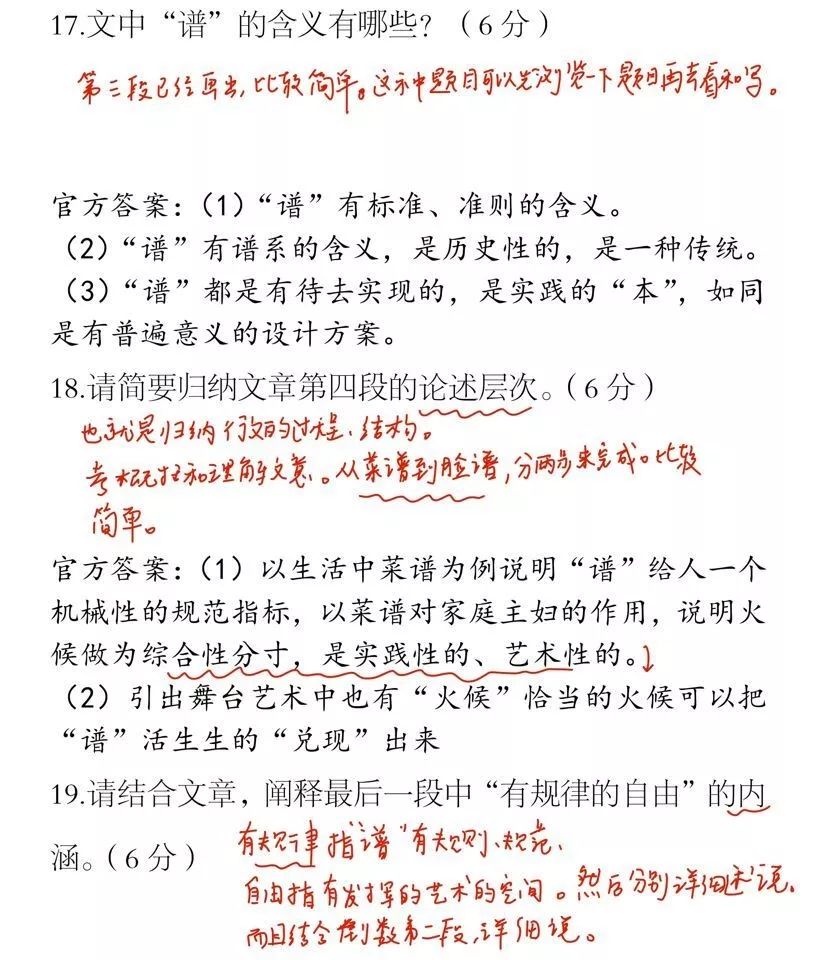 17.文中“谱”的含义有哪些？（6分）
第三段已经画出，比较简单。这种题目可以先浏览一下题目再去看和写。
官方答案：（1）“谱”有标准、准则的含义。
（2）“谱”有谱系的含义，是历史性的，是一种传统。
（3）“谱”都是有待去实现的，是实践的“本”，如同
是有普遍意义的设计方案。
18.请简要归纳文章第四段的论述层次。（6分）
也就是归纳行文的过程、结构。
考概括和理解文意。从菜谱到脸谱，分两步来完成。比较
简单。
官方答案：（1）以生活中菜谱为例说明“谱”给人一个
机械性的规范指标，以菜谱对家庭主妇的作用，说明火
候做为综合性分寸，是实践性的、艺术性的。
（2）引出舞台艺术中也有“火候”恰当的火候可以把
“谱”活生生的“兑现”出来
19.请结合文章，阐释最后一段中“有规律的自由”的内
涵。（6分）
有规律指“谱”有规则、规范、
自由指有发挥的艺术的空间。然后分别详细述说，
而且结合倒数第二段，详细说。